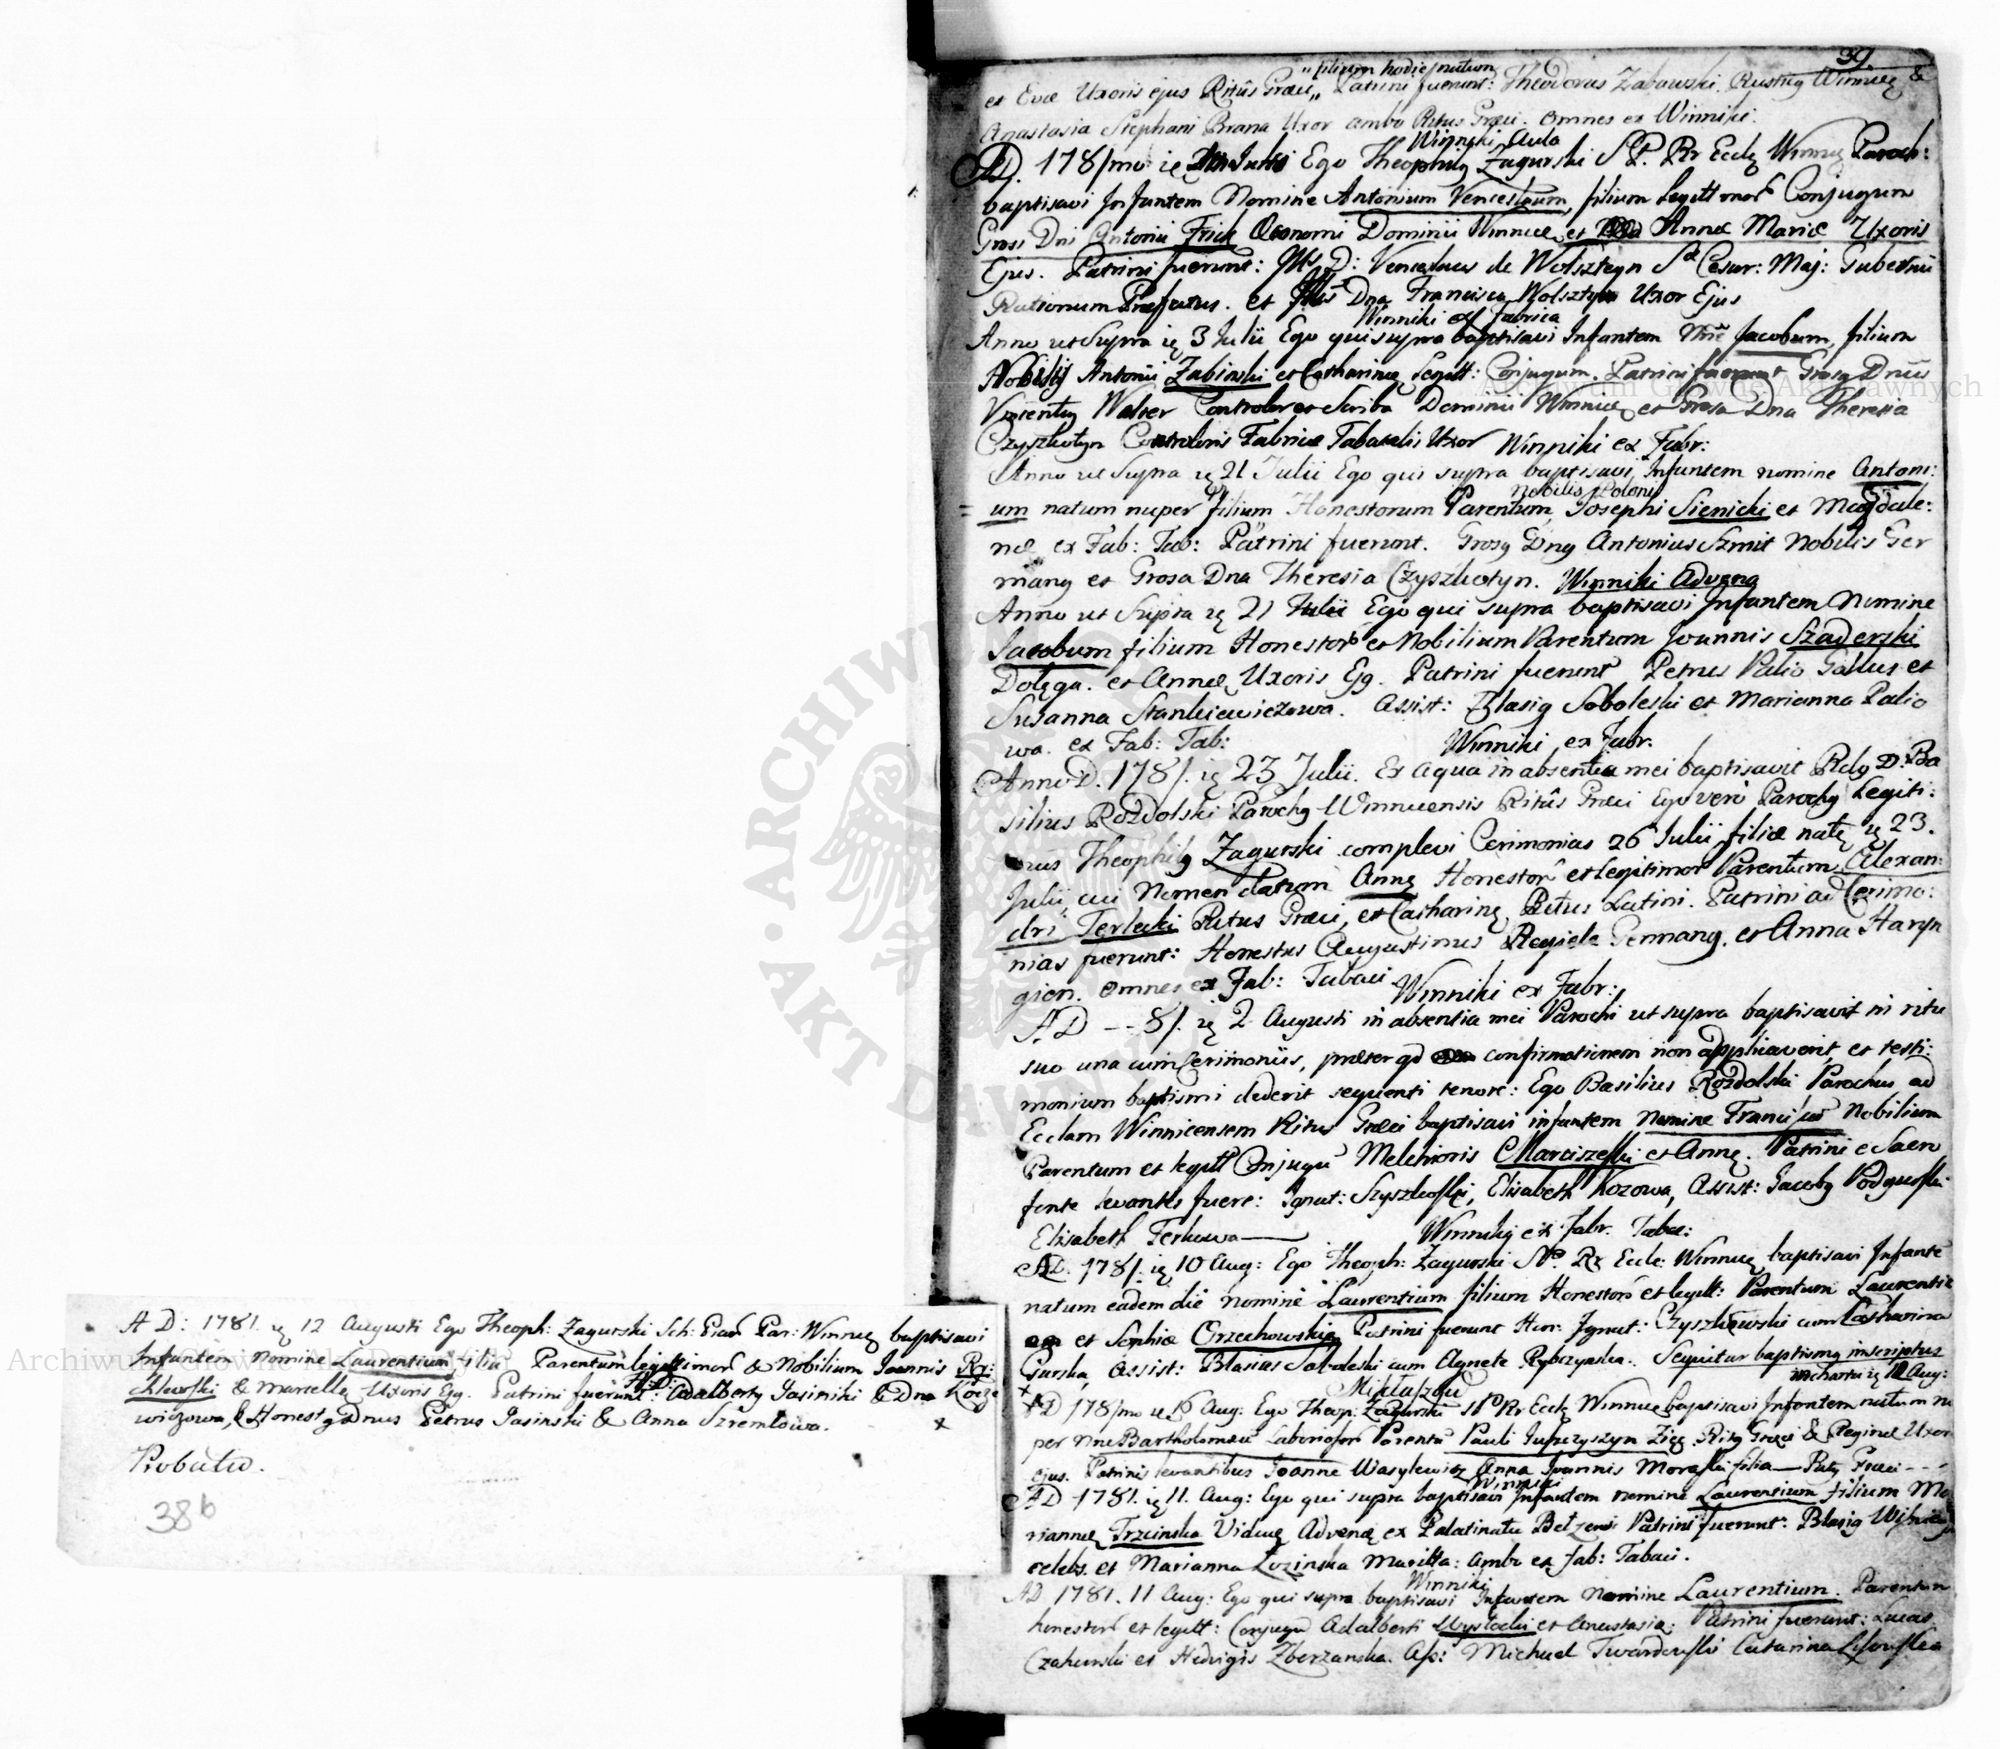 39
"filium hodie natum
et Evæ Uxoris ejus Ritûs Græci,, Patrini fuerunt: Theodorus Zabawski Winnicę &
Anastasia Stephani Brana Uxor ambo Ritus Græci. Omnes ex Winniki.
Winniki Aula
AD. 1781mo ię Julii Ego Theophilg Zagurski S.P. Rr Eccle Winnic Paroch:
baptisavi Infantem Nomine Antonium Venceslaum, filium Legitt mor Conjugum
Grosi Dni Antonii Frick Œconomi Dominii Winnicę et Annæ Mariæ Uxoris
Ejus. Patrini fuerunt: Ills D: Venceslaus de Wolszteyn Sæ Cesar: Maj: Gubernii
Rationum Præfatus. et Ills Dna Francisca Wolsztyn Uxor Ejus
Winniki ex Fabrica
Anno ut Supra ię 3 Julii Ego qui supra baptisavi Infantem Nne Jacobum, filium
Nobilis Antonii Zabinski et Catharinę Legitt: Conjugum. Patrini fuerunt Grosg Dnus
Vincentg Walter Controlor et Scriba Dominii Winnicę et Grosa Dna Theresia
Czyszkotyn Controloris Fabricæ Tabacalis Uxor Winniki ex Fabr:
Anno ut Supra ię 21 Julii Ego qui supra baptisavi Infantem nomine Antoni:
Nobilis Poloni
um natum nuper filium Honestorum Parentum, Josephi Sienicki et Magdale:
næ ex Fab: Tab: Patrini fuerunt. Grosg Dng Antonius Szmit Nobilis Ger
mang et Grosa Dna Theresia Czyszkotyn. Winniki Advena
Anno ut Supra ię 21 Julii Ego qui supra baptisavi Infantem Nomine
Jacobum filium Honestor et Nobilium Parentum Joannis Szaderski
Dolęga. et Annæ Uxoris Ejg. Patrini fuerunt Petrus Palio Gallus et
Susanna Stankiewiczowa. Assist: Blasig Soboleski et Marianna Palio
wa. ex Fab: Tab: Winniki ex Fabr.
Anno D. 1781. ię 23 Julii. Ex Aqua in absentia mei baptisavit Rdg D: Ba
silius Rozdolski Parochg Winnicensis Ritûs Græci Ego vero Parochg Legiti:
mus Theophilg Zagurski complevi Cerimonias 26 Julii filiæ natę ię 23.
Julii cui Nomen datum Annę Honestor et legitimor Parentum Alexan:
dri Terlecki Ritus Græci, et Catharinę Ritus Latini. Patrini ad Cerimo:
nias fuerunt: Honestus Augustinus Germang. et Anna Haryn
gien. Omnes ex Fab: Tabaci Winniki ex Fabr:
AD -- 81. ię 2 Augusti in absentia mei Parochi ut supra baptisavit in ritu
suo una cum Cerimoniis, præter qd confirmationem non applicaverit et testi:
monium baptismi dederit sequenti tenore: Ego Basilius Rozdolski Parochus ad
Ecclam Winnicensem Ritus Græci baptisavi infantem nomine Nobilium
Parentum et legitt Conjugū Melchioris Marciszeski et Annę. Patrini e Sacro
fonte levantes fuere: Ignat: Szyszkoski, Elisabeth Kozowa, Assist: Jacobg Podguski
Elisabeth Terkowa Winniky ex Fabr. Tabac:
AD. 1781. ię 10 Aug: Ego Theoph: Zagurski S.P. Rr Eccle: Winnicę baptisavi Infante
natum eadem die nomine Laurentium filium Honestor et legitt: Parentum Laurentii
et Sophiæ Orzechowskich Patrini fuerunt Hon: Ignat: Czyszkowski cum Catharina
Gurska, Assist: Blasius Soboleski cum Agnete Rybczynska. Sequitur baptismg inscriptus
in charta ię 12 Aug:
x Miklaszow
AD 1781mo ię 16 Aug: Ego Theop: Zagurski S.P. Rr Eccle Winnicę baptisavi Infantem natum nu
per Nne Bartholomæū Laboriosor Parentū Pauli Zięc. Ritg Græci & Reginæ Uxor
ejus. Patrinis levantibus Joanne Wasylewicz Anna Joannis Moraski filia — Ritg Græci ---
Winniki
AD 1781. ię 11. Aug: Ego qui supra baptisavi Infantem nomine Laurentium filium Ma
riannæ Trzcinska Viduę Advenæ ex Palatinatu Belzensi Patrini fuerunt: Blasig
celebs. et Marianna Łozinska Maritta: ambo ex Fab: Tabaci.
Winniki
AD 1781. 11 Aug: Ego qui supra baptisavi Infantem Nomine Laurentium. Parentum
honestor et legitt: Conjugū Adalberti Wysłocki et Anastasiæ: Patrini fuerunt: Lucas
Czakurski et Hedvigis Zberzanska. Ass: Michael Twardouski Catarina
AD: 1781. ię 12 Augusti Ego Theoph: Zagurski Par: Winnicę baptisavi
Infantem nomine Laurentium filiū Parentum legittimor & Nobilium Joannis Ry:
chlewski & Marcellę Uxoris Ejg. Patrini fuerunt: Adalbertg Jasinski & Dna Korze
wiczowa, & Honestg Dnus Petrus Jasinski & Anna Szremlowa. x
Probata.
38b
Archiwum Główne Akt Dawnych
Archiwum Główne Akt Dawnych
ARCHIWUM GŁÓWNE AKT DAWNYCH